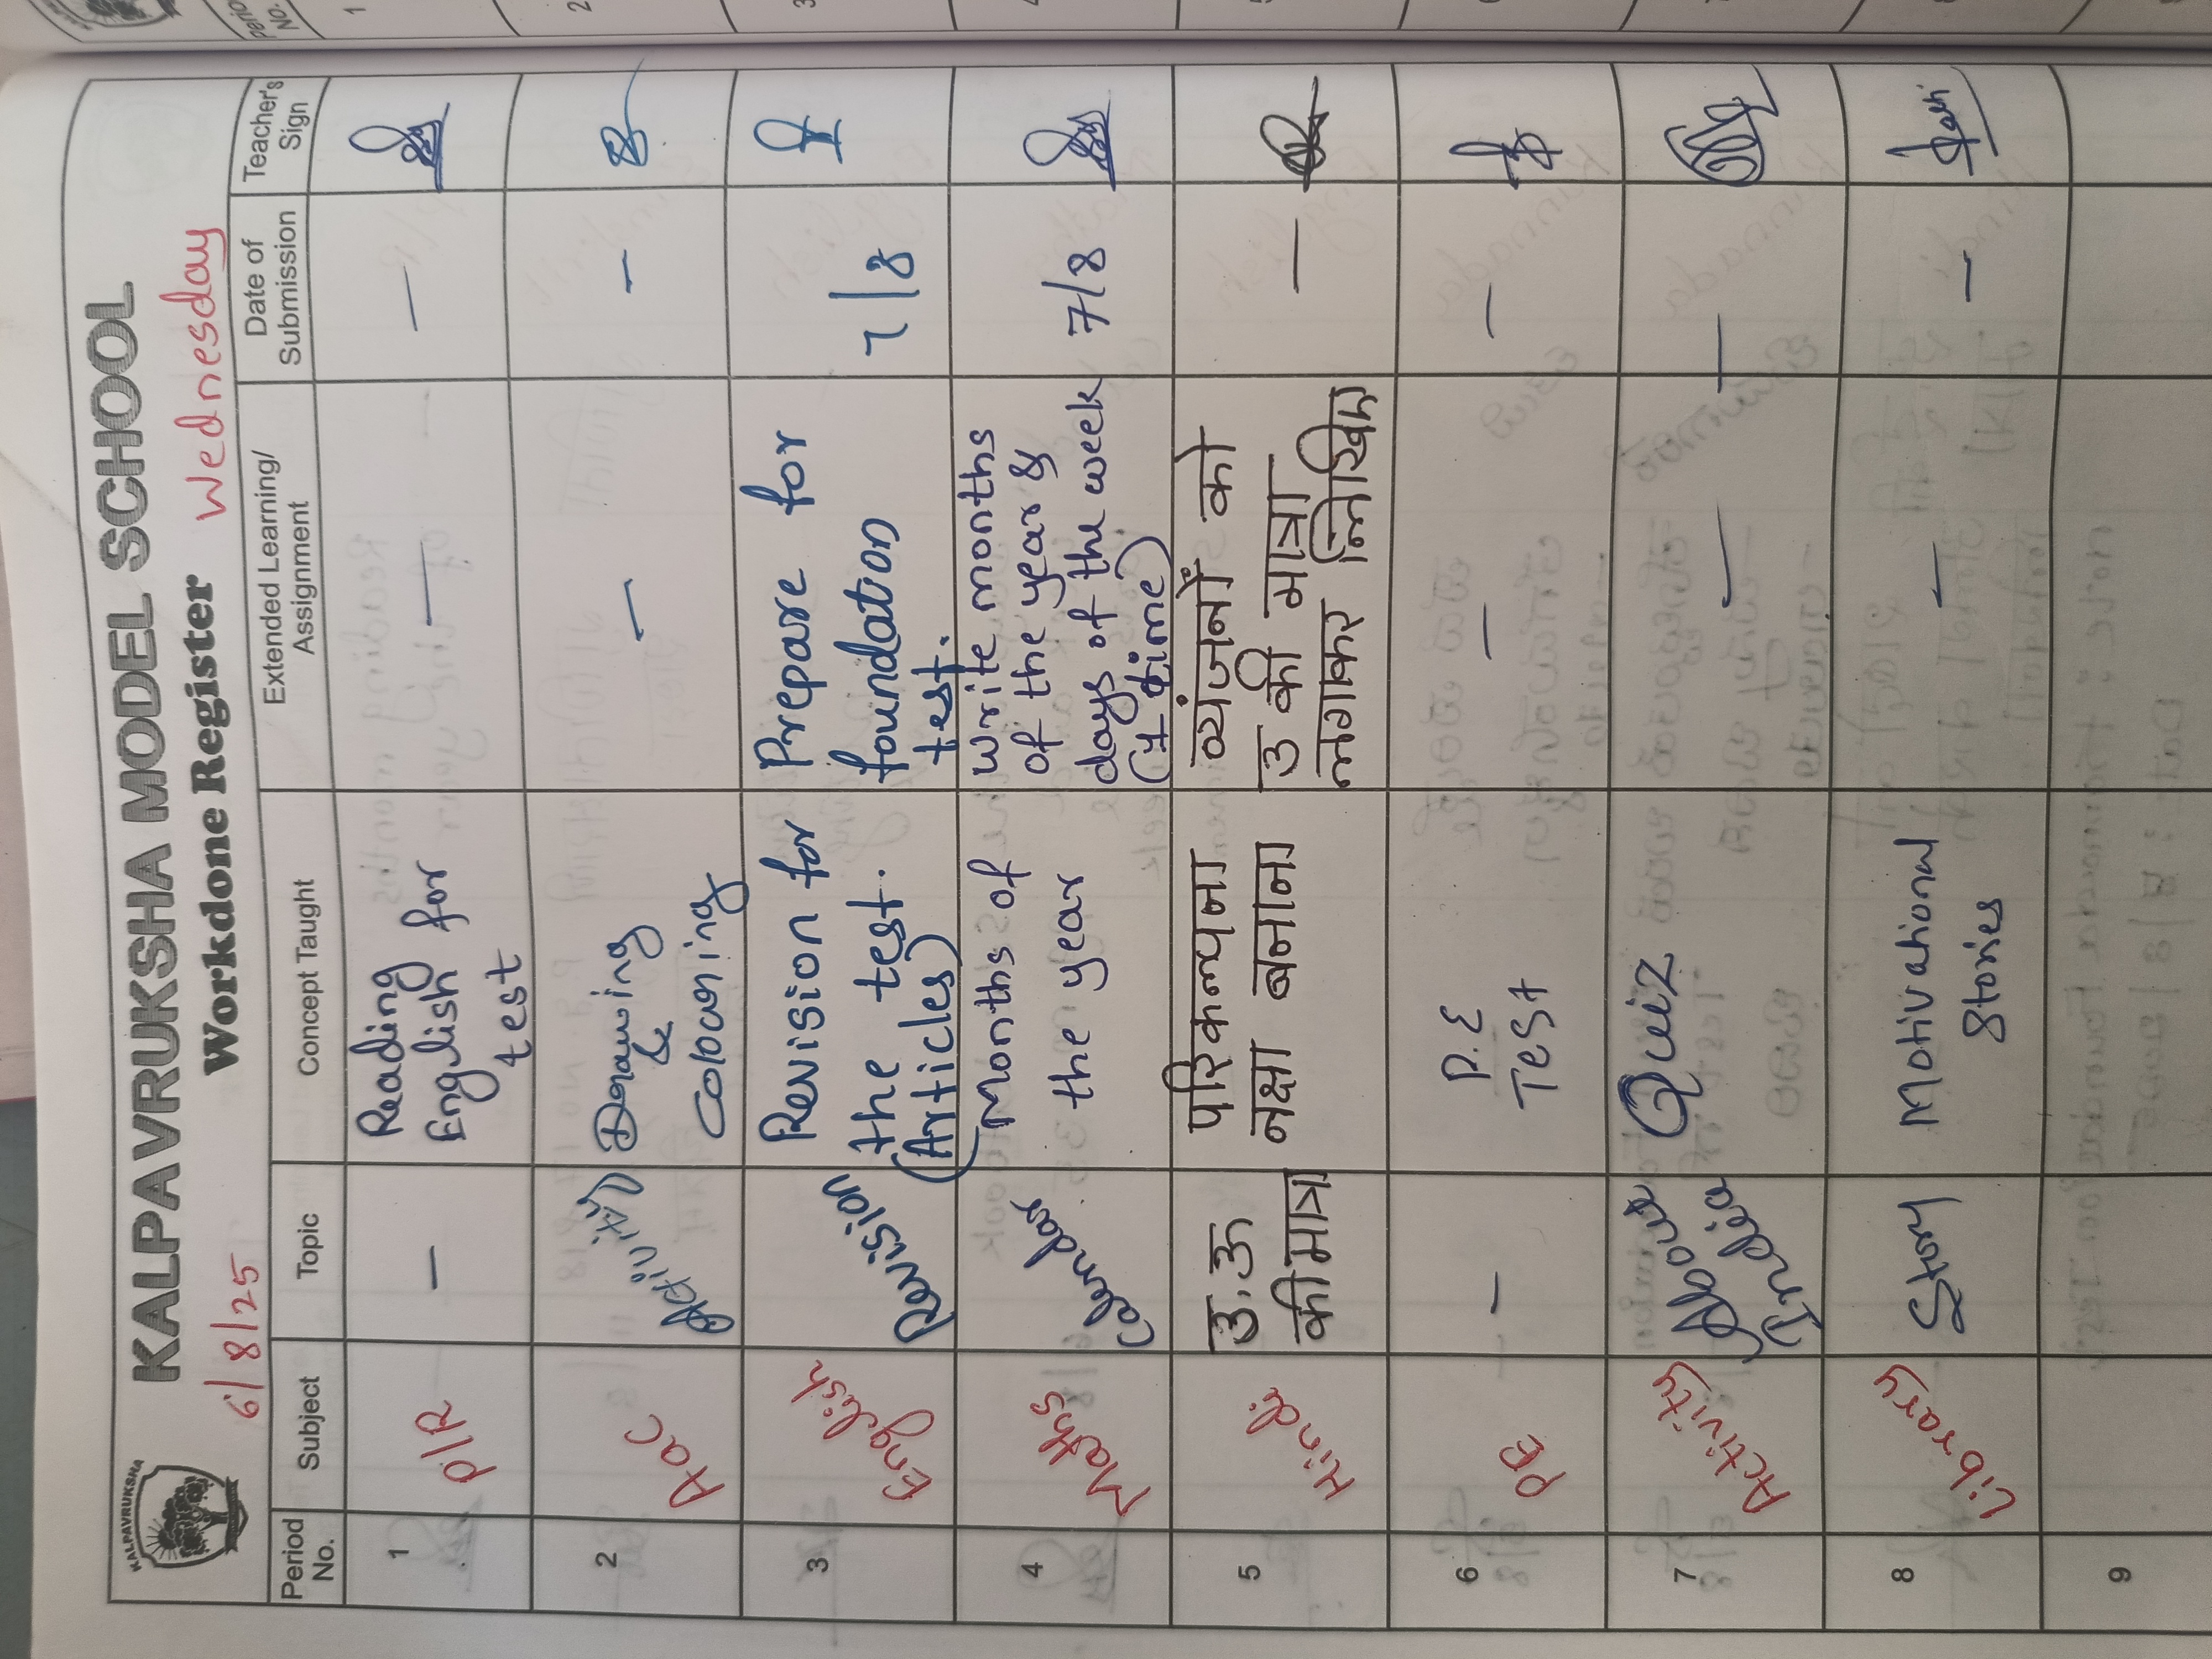 KALPAVRUKSHA
KALPAVRUKSHA MODEL SCHOOL
6/8/25 Workdone Register Wednesday
Period No. Subject Topic Concept Taught Extended Learning/ Assignment Date of Submission Teacher's Sign
1 P/R — Reading
English for
test — —
2 Aac Activity Drawing
&
Colouring — —
3 English Revision Revision for
the test.
(Articles) Prepare for
foundation
test. 7/8
4 Maths Calendar Months of
the year write months
of the year &
days of the week
(1 time) 7/8
5 Hindi उ, ऊ
की मात्रा परिकल्पना
नक्षा बनाना व्यंजनों को
उ की मात्रा
लगाकर लिखिए —
6 PE — P.E
Test — —
7 Activity About
India Quiz — —
8 Library Story Motivational
Stories — —
9